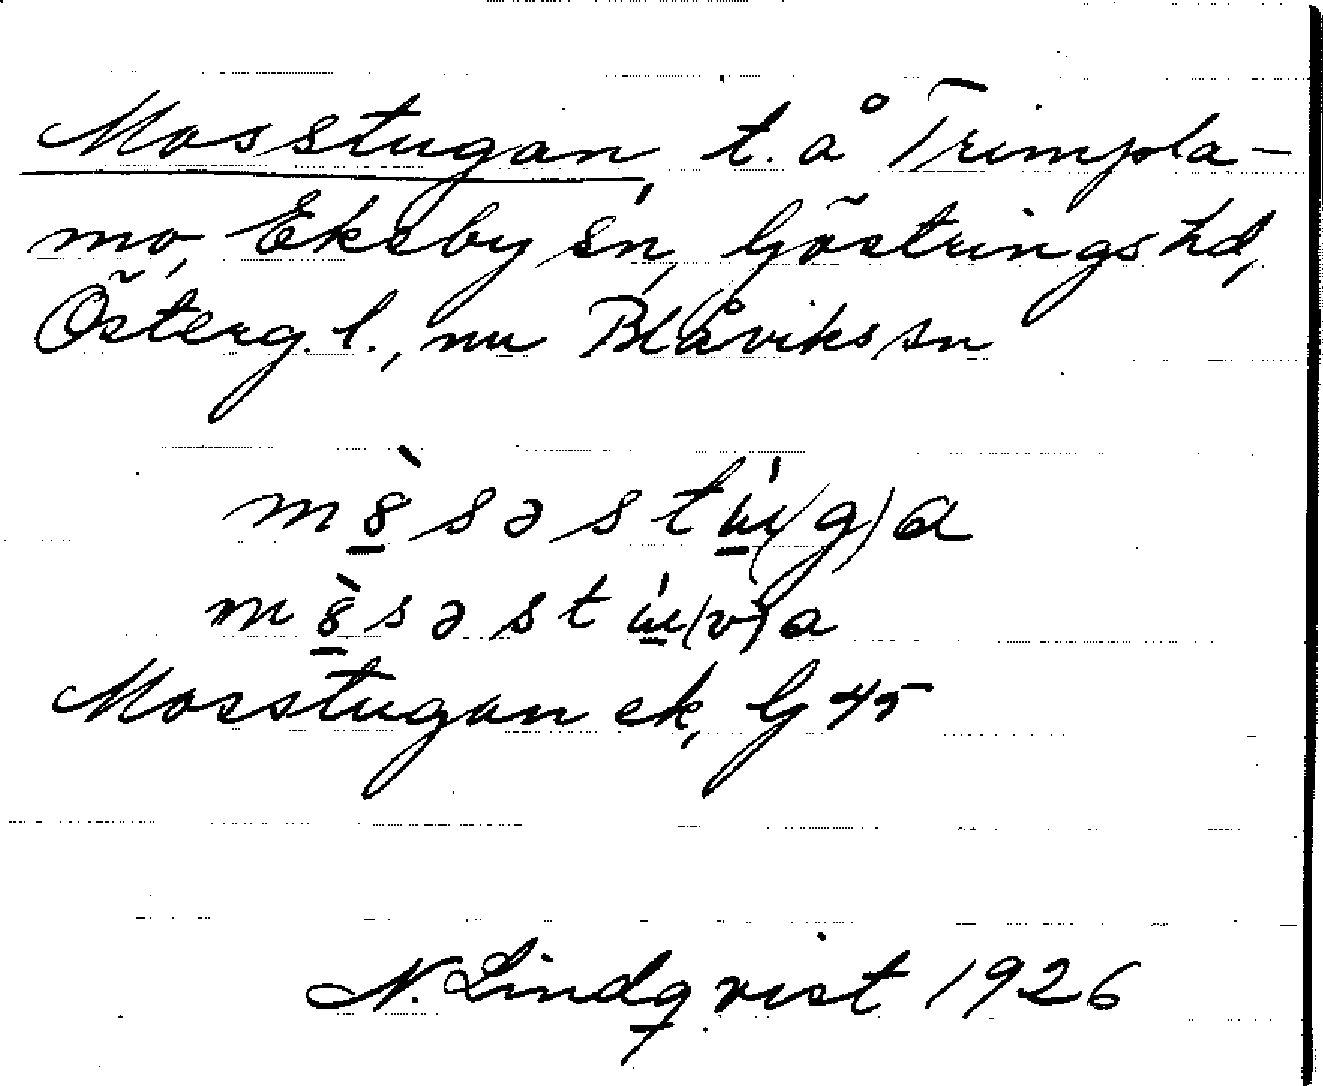 Mosstugan, t. å Trimpla-
mo, Ekeby sn, Göstrings hd,
Österg. l., nu Blåviks sn
mòsəstú(g)a
mòsəstú(v)a
Mosstugan ek, G 45
N. Lindqvist 1926